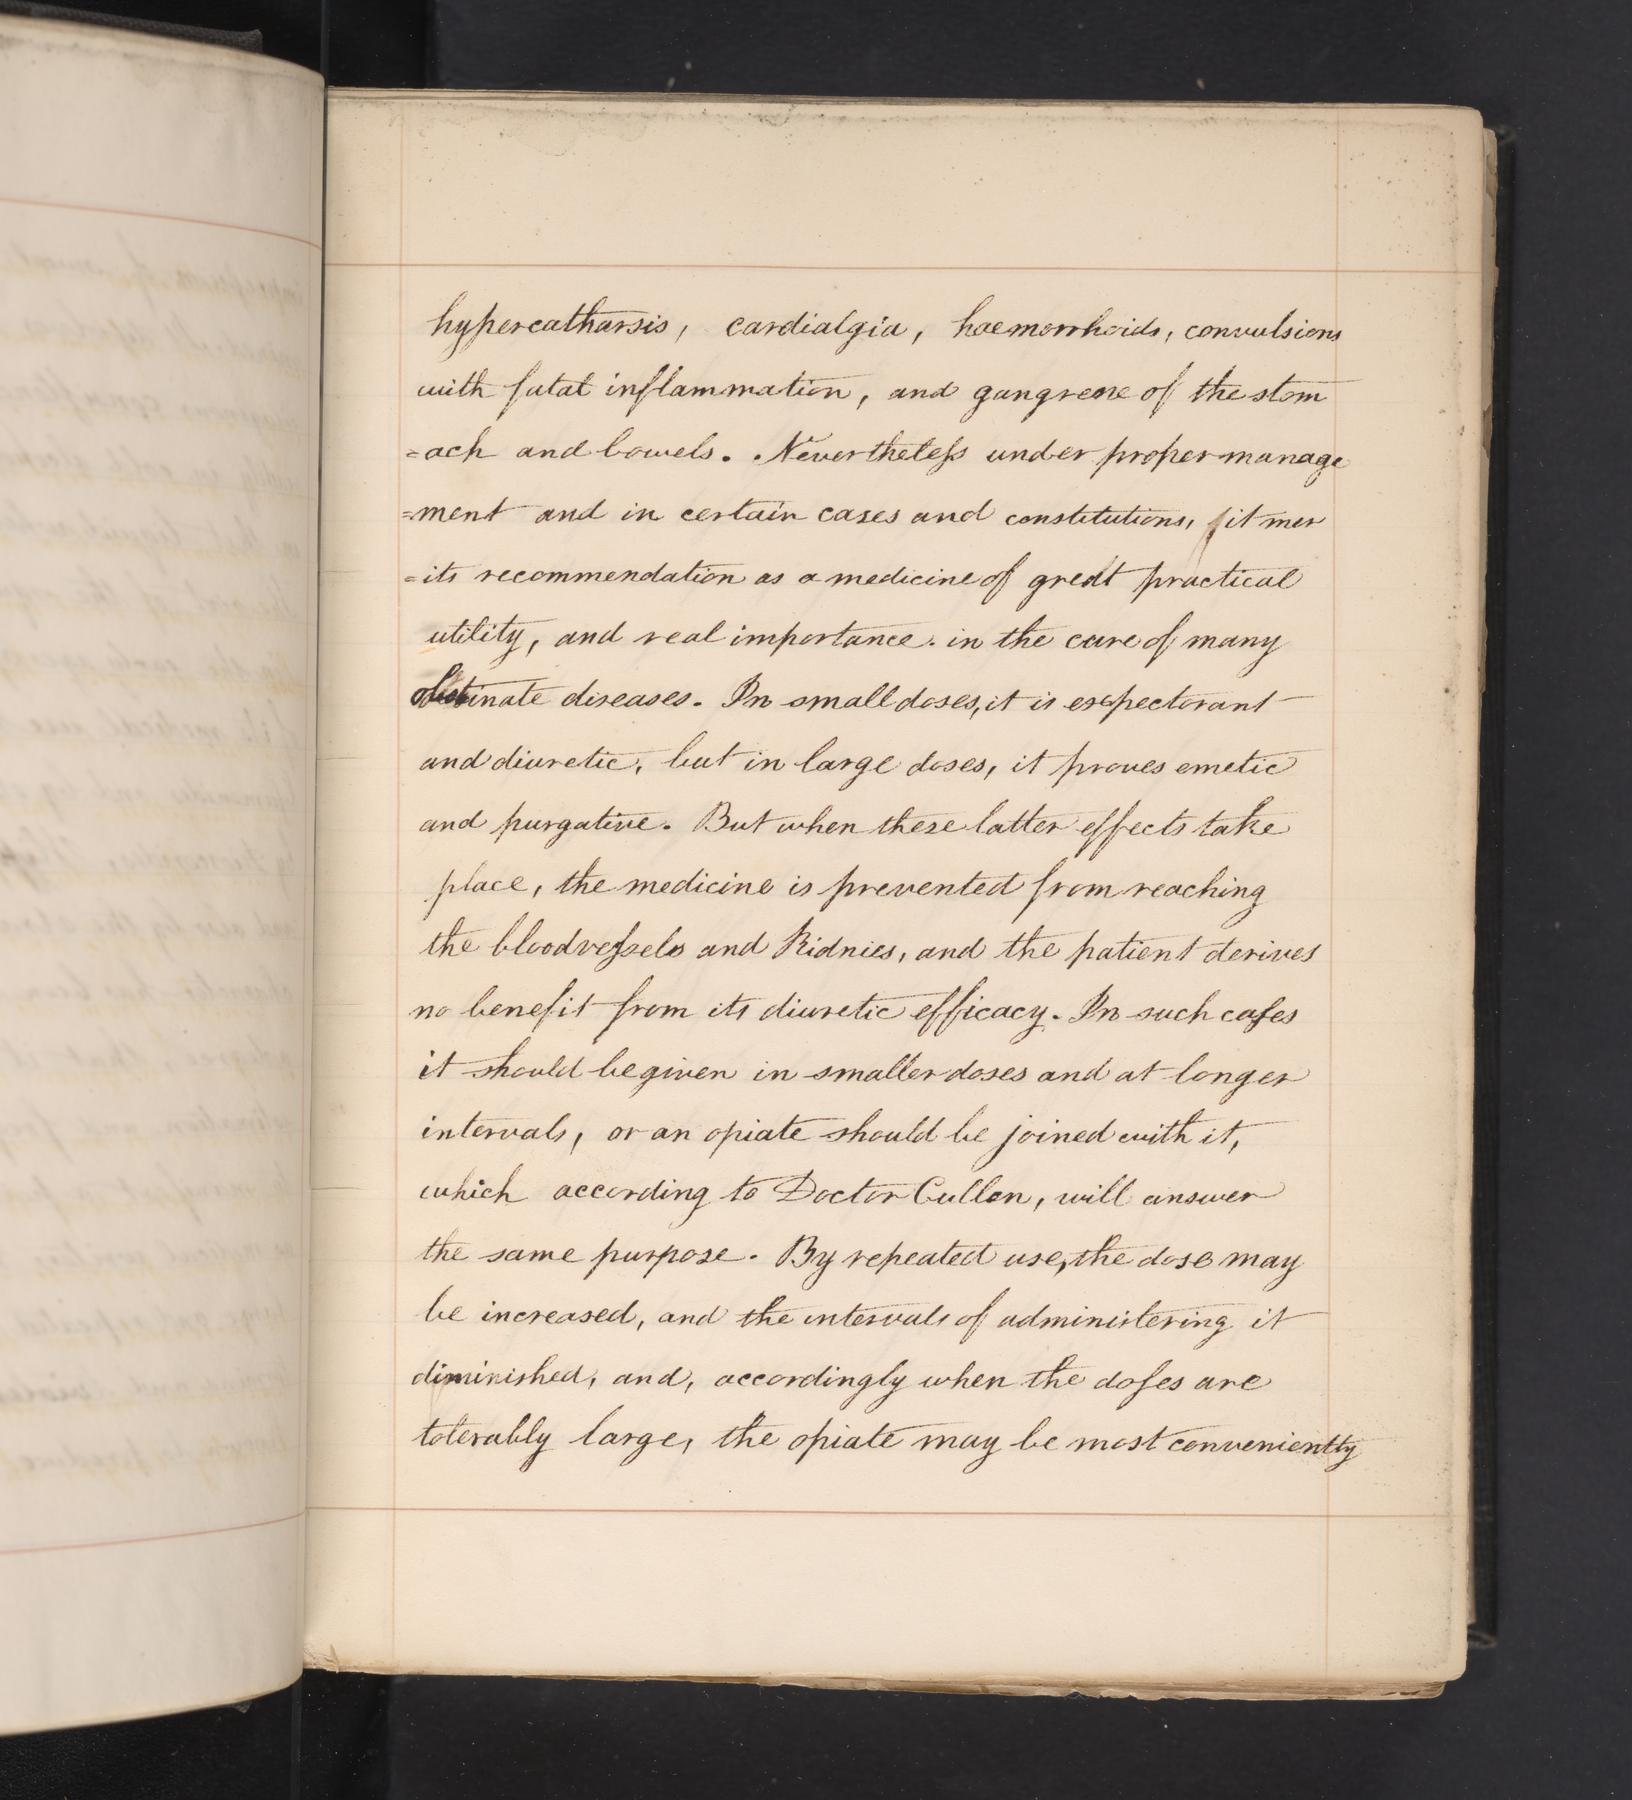 hypercatharsis, cardialgia, haemorrhoids, convulsions
with fatal inflammation, and gangrene of the stom
=ach and bowels. Nevertheless under proper manage
=ment and in certain cases and constitutions, it mer
=its recommendation as a medicine of great practical
utility, and real importance. in the cure of many
obstinate diseases. In small doses, it is expectorant
and diuretic, but in large doses, it proves emetic
and purgative. But when these latter effects take
place, the medicine is prevented from reaching
the bloodvessels and Kidnies, and the patient derives
no benefit from its diuretic efficacy. In such cases
it should be given in smaller doses and at longer
intervals, or an opiate should be joined with it,
which according to Doctor Cullen, will answer
the same purpose. By repeated use, the dose may
be increased, and the intervals of administering it
diminished, and, accordingly when the doses are
tolerably large, the opiate may be most conveniently